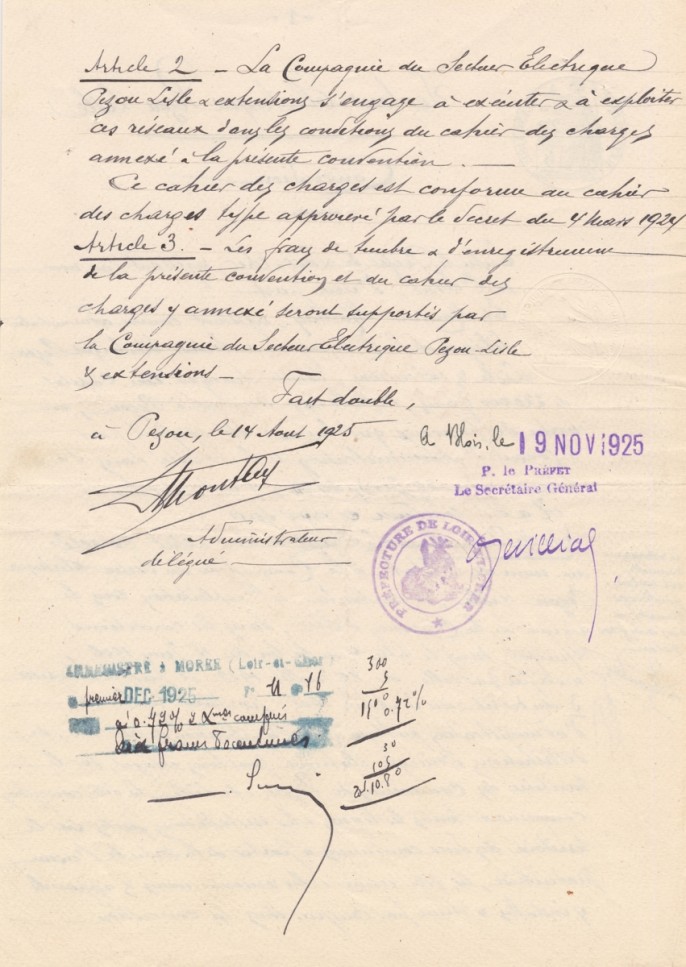 Article 2 _ La Compagnie du Secteur Electrique
Pezou Lisle & extensions s'engage à exécuter & à exploiter
ces réseaux dans les conditions du cahier des charges
annexé à la présente convention. _
Ce cahier des charges est conforme au cahier
des charges type approuvé par le Décret du 4 Mars 1924
Article 3. _ Les frais de timbre & d'enregistrement
de la présente convention et du cahier des
charges y annexé seront supportés par
la Compagnie du Secteur Electrique Pezou-Lisle
& extensions _
Fait double,
à Pezou, le 14 Aout 1925
A Blois, le 19 NOV 1925
P. le PRÉFET
Le Secrétaire Général
Administrateur
délégué
PRÉFECTURE DE LOIR-ET-CHER
ENREGISTRÉ A MORÉE (Loir-et-Cher)
premier DEC 1925 F° 11 C 76
à 0.72% & Xmes compris
francs
300
5
1500
0.72%
30